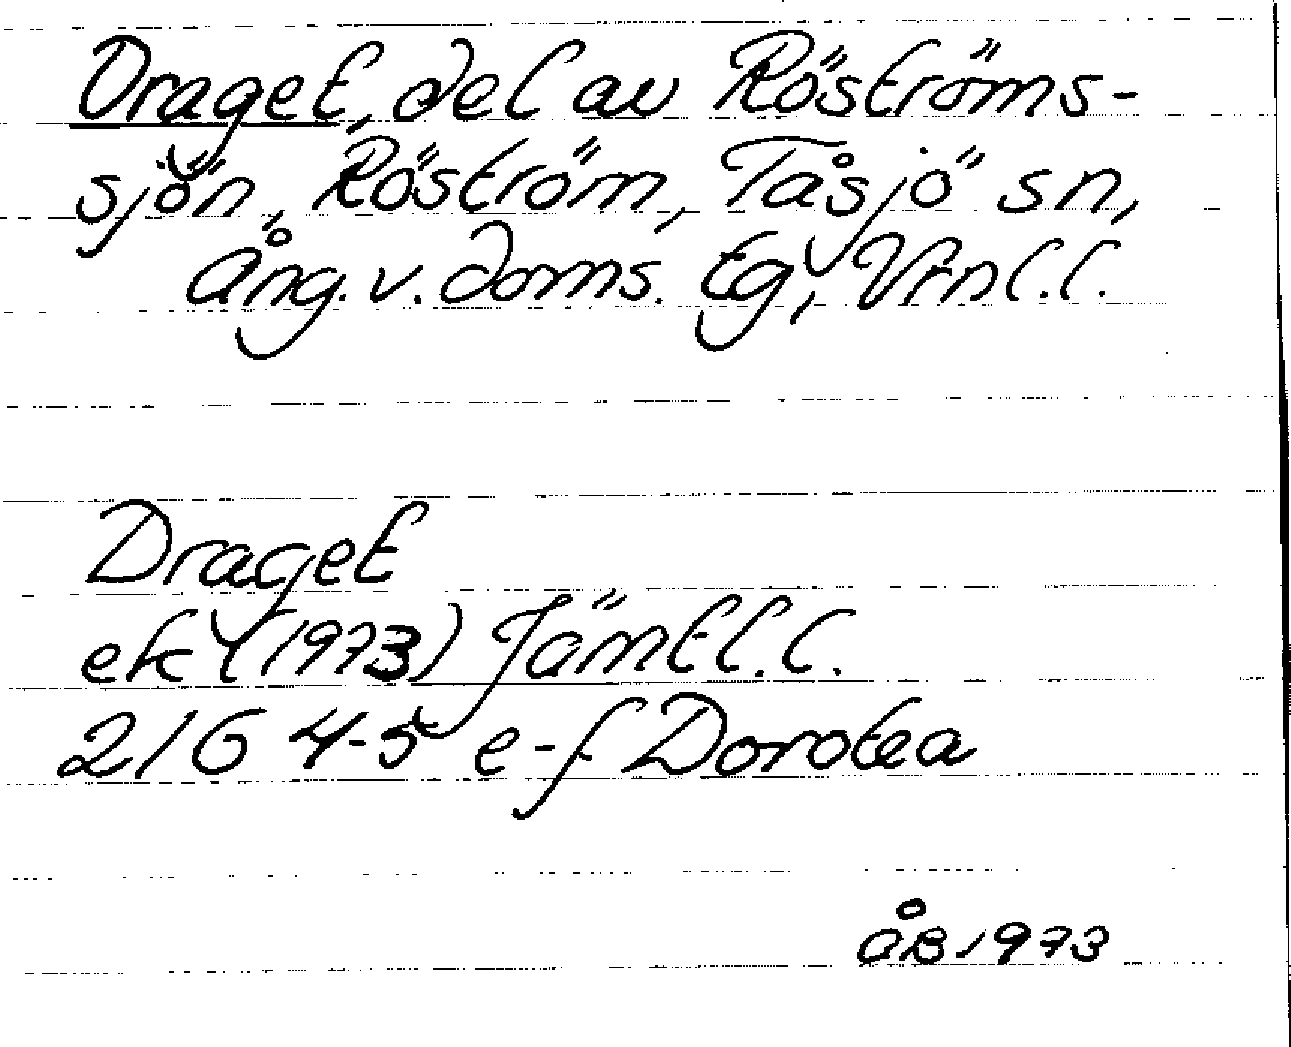 Draget, del av Röströms-
sjön, Röström, Tåsjö sn,
Ång. v. doms. tg, Vrnl.l.
Draget
ek (1973) Jämtl.l.
21G 4-5 e-f Dorotea
ÅB 1973